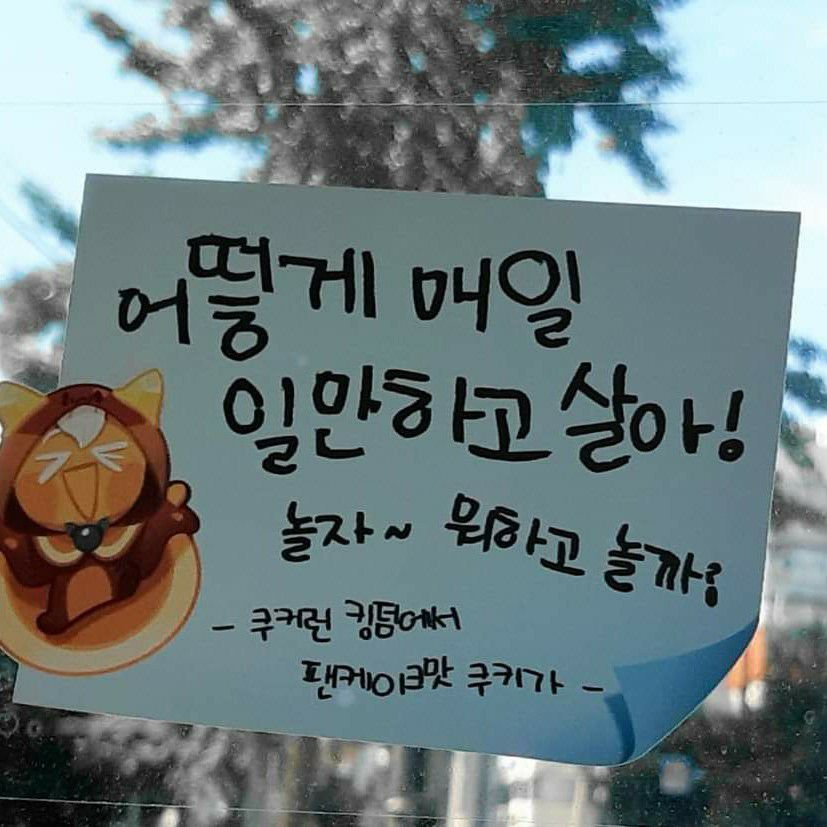 어떻게 매일
일만하고 살아!
놀자~ 뭐하고 놀까?
- 쿠키런 킹덤에서
팬케이크맛 쿠키가 -